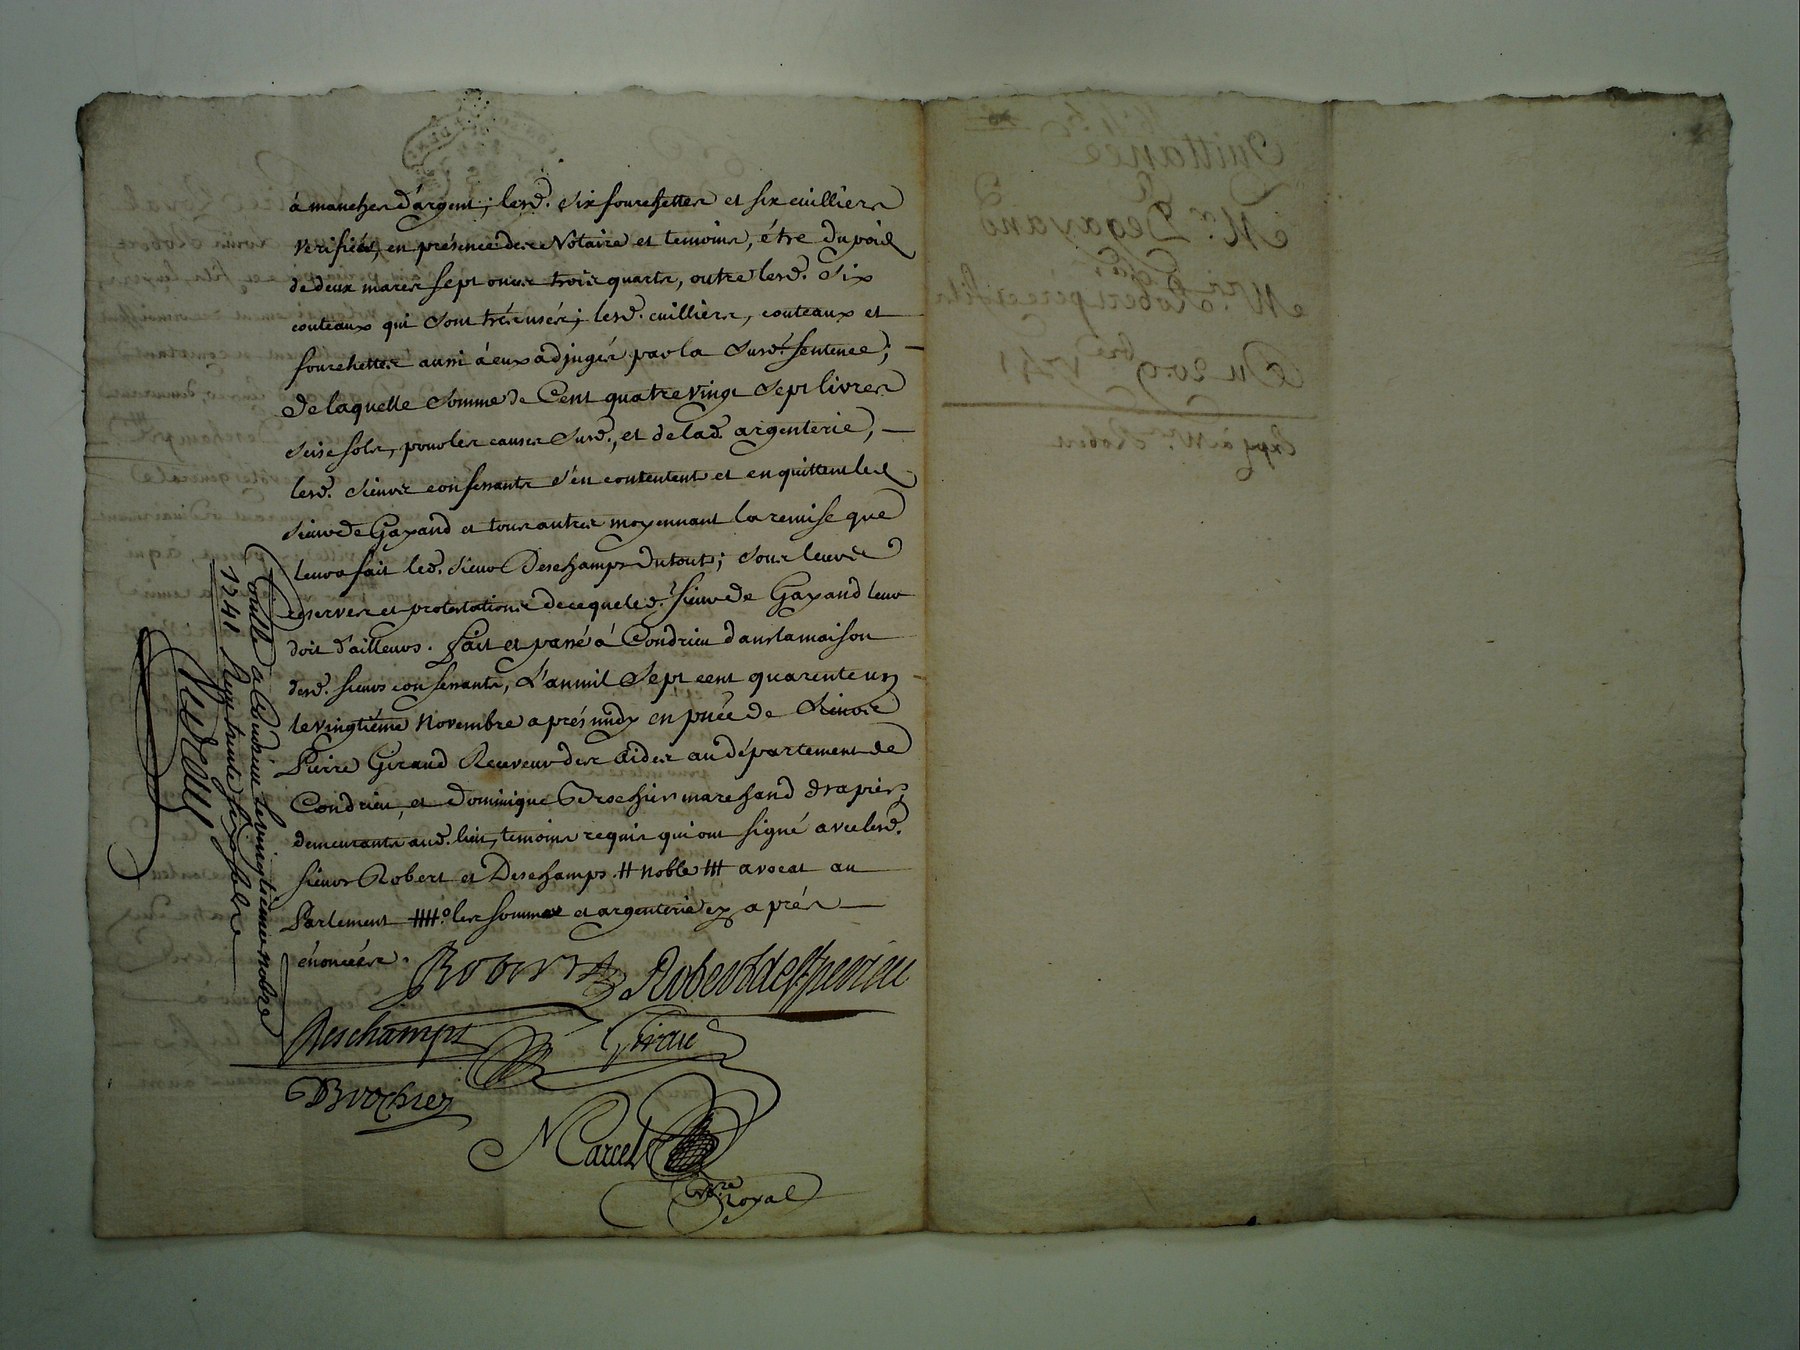 à manches d'argent; lesd. six fourchettes et six cuilliers
verifiés, en présence desce Notaire et temoins, étre du poid
de deux marcs sept onces trois quarts, outre lesd. six
couteaux qui sont trés usés; lesd. cuilliers, couteaux et
fourchettes aussi à eux adjugés par la susd. sentence;
de laquelle somme de Cent quatre vingt sept livres
seise sols, pour les causes susd., et de lad. argenterie,
lesd. sieurs confessants s'en contentent et en quittent led
sieur de Gayand et tous autres moyennant la remise que
leur a fait led. sieur Deschamps du tout; sous leurs
reserves et protestations de ce que led. sieur de Gayand leur
doit d'ailleurs. fait et passé à Condrieu dans la maison
desd. sieurs confessants, L'an mil sept cent quarente un
le vingtiéme Novembre aprés midy en pñce de Sieurs
Pierre Giraud Receveur des Aides au département de
Condrieu, et Dominique Brochier marchand drapier,
demeurants aud. lieu, temoins requis qui ont signé avec lesd.
sieurs Robert et Deschamps. # noble ## avocat au
Parlement ###. les sommes et argenterie cy aprés
énoncées.
Robert Robert
Deschamps Girau
Brochier
Marcel
Nre Royal
Controllé a Condrieu le vingtième nobre
1741 Reçu trente six sols
Quittance
Mr. Degayand
Mrs. Robert pere et fils
Du 20. 9bre 1741
Expé à Mr. Robert